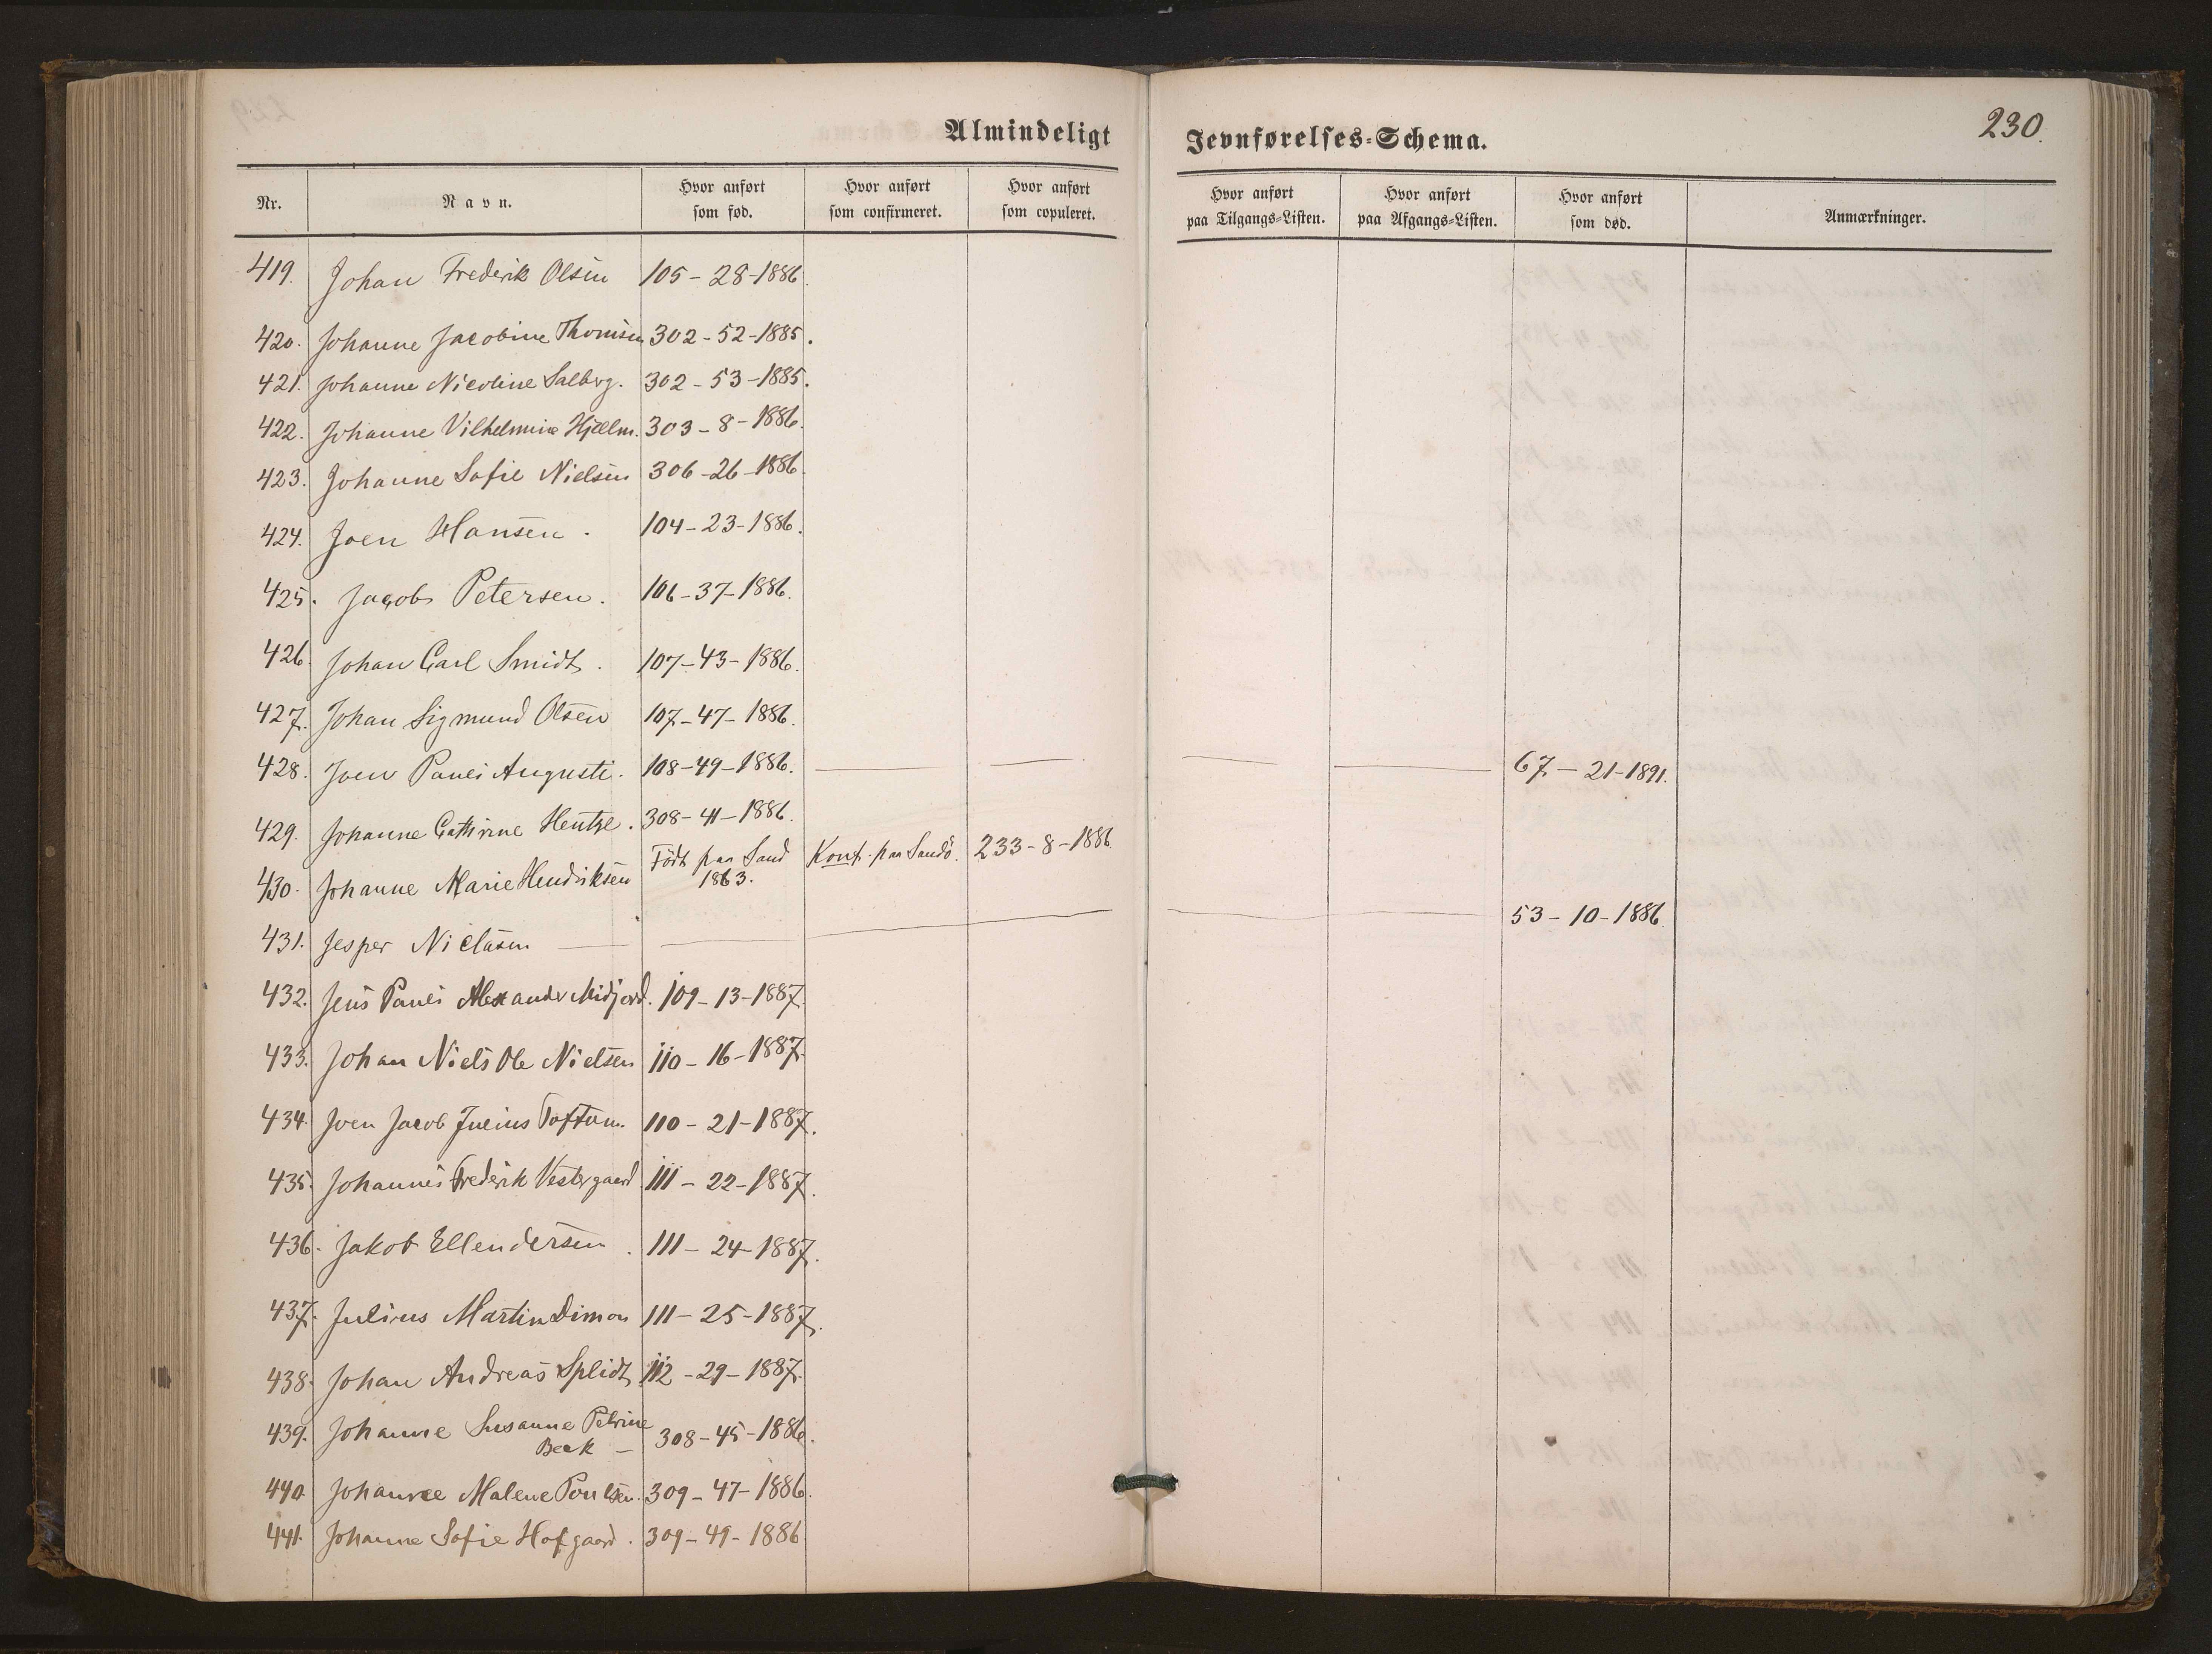 Almindeligt Jevnførelses-Schema. 230.
Nr. Navn. Hvor anført som fød. Hvor anført som confirmeret. Hvor anført som copuleret. Hvor anført paa Tilgangs-Listen. Hvor anført paa Afgangs-Listen. Hvor anført som død. Anmærkninger.
419. Johan Frederik Olsen 105-28-1886.
420. Johanne Jacobine Thomsen 302-52-1885.
421. Johanne Nicoline Salberg. 302-53-1885.
422. Johanne Vilhelmine Hjælm. 303-8-1886.
423. Johanne Sofie Nielsen 306-26-1886.
424. Joen Hansen. 104-23-1886.
425. Jacob Petersen. 106-37-1886.
426. Johan Carl Smidt. 107-43-1886.
427. Johan Sigmund Olsen 107-47-1886.
428. Joen Pauli Augusti. 108-49-1886. — — — — 67-21-1891.
429. Johanne Cathrine Hentze. 308-41-1886.
430. Johanne Marie Hendriksen Födt paa Sand 1863. Konf. paa Sandö. 233-8-1886.
431. Jesper Niclasen — — — — — 53-10-1886.
432. Jens Pauli Alexander Midjord. 109-13-1887.
433. Johan Niels Ole Nielsen 110-16-1887.
434. Joen Jacob Julius Toftum. 110-21-1887.
435. Johannes Frederik Vestergaard 111-22-1887.
436. Jakob Ellendersen. 111-24-1887.
437. Julius Martin Dimon 111-25-1887.
438. Johan Andreas Splidt 112-29-1887.
439. Johanne Susanne Petrine
Beck — 308-45-1886.
440. Johanne Malene Poulsen. 309-47-1886.
441. Johanne Sofie Hofgaard. 309-49-1886.